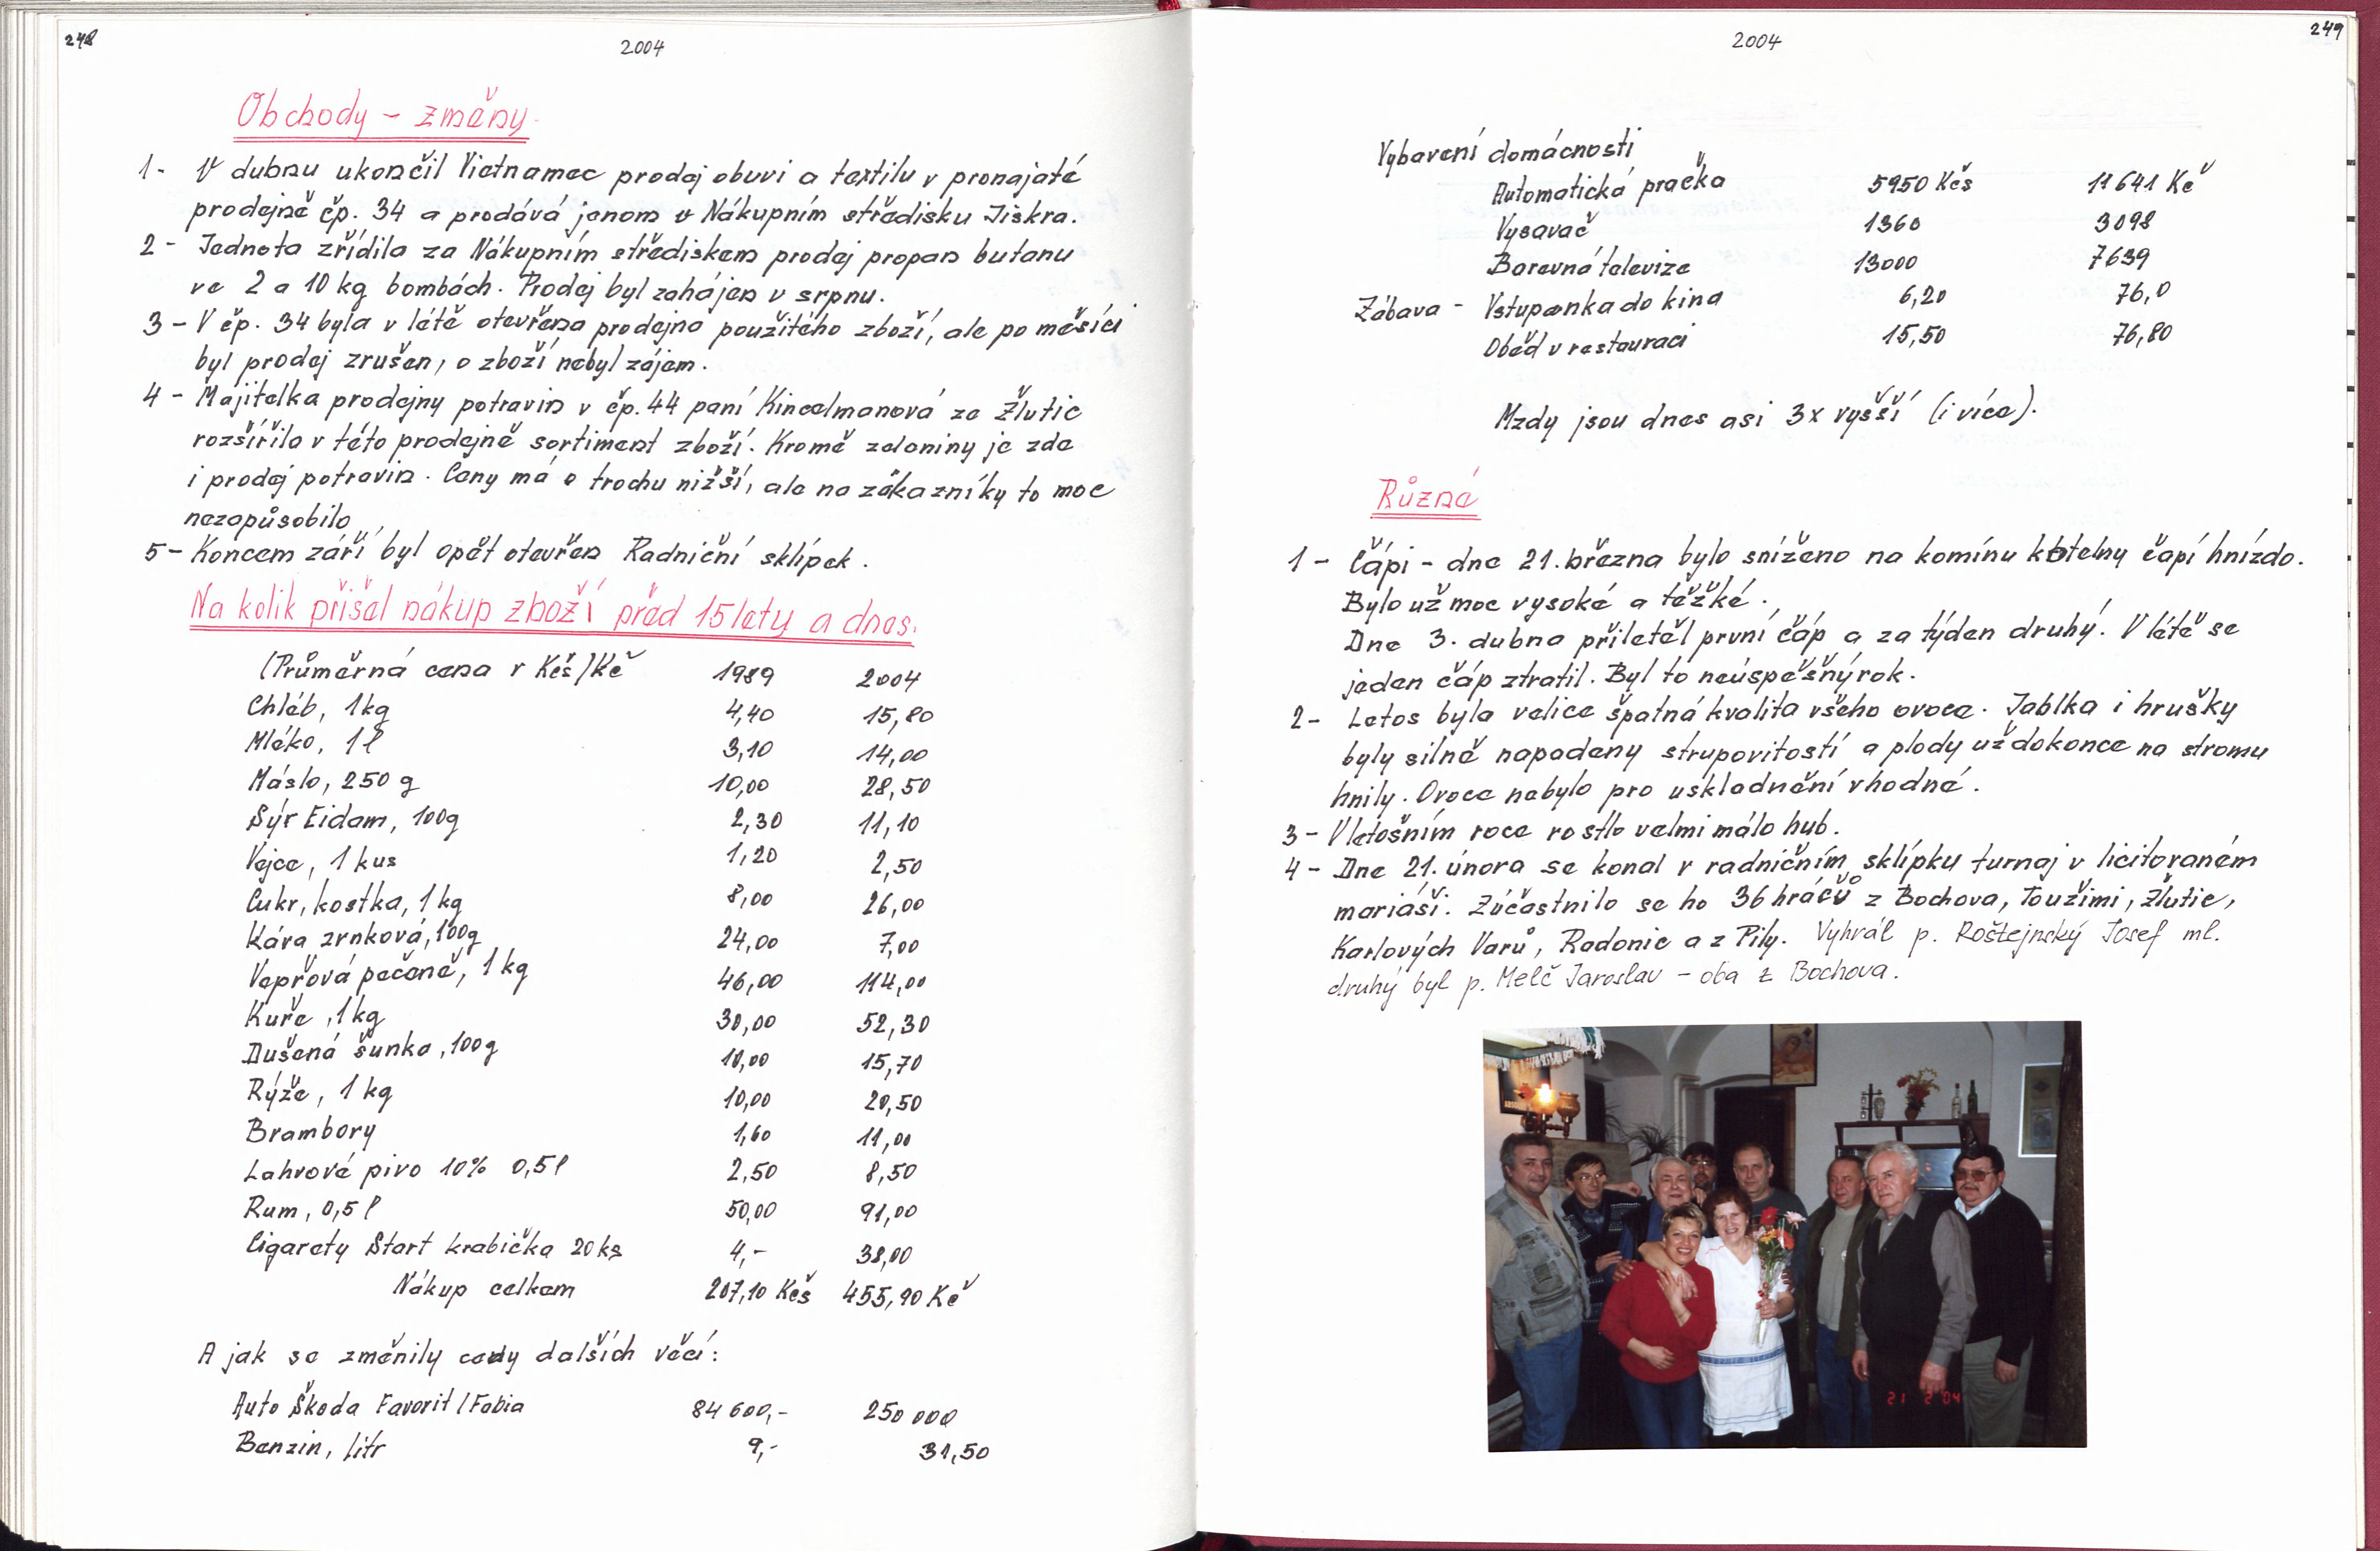 248
2004
Obchody - změny
1- V dubnu ukončil Vietnamec prodej obuvi a textilu v pronajaté
prodejně čp. 34 a prodává jenom v Nákupním středisku Jiskra.
2- Jednota zřídila za Nákupním střediskem prodej propan butanu
ve 2 a 10 kg bombách. Prodej byl zahájen v srpnu.
3- V čp. 34 byla v létě otevřena prodejna použitého zboží, ale po měsíci
byl prodej zrušen, o zboží nebyl zájem.
4- Majitelka prodejny potravin v čp. 44 paní Kincelmanová ze Žlutic
rozšířila v této prodejně sortiment zboží. Kromě zeleniny je zde
i prodej potravin. Ceny má o trochu nižší, ale na zákazníky to moc
nezapůsobilo
5- Koncem září byl opět otevřen Radniční sklípek.
Na kolik přišel nákup zboží před 15 lety a dnes.
(Průměrná cena v Kčs)Kč 1989 2004
Chléb, 1kg 4,40 15,80
Mléko, 1l 3,10 14,00
Máslo, 250 g 10,00 28,50
Sýr Eidam, 100g 2,30 11,10
Vejce, 1 kus 1,20 2,50
Cukr, kostka, 1 kg 8,00 26,00
Káva zrnková, 100g 24,00 7,00
Vepřová pečeně, 1 kg 46,00 114,00
Kuře, 1kg 30,00 52,30
Dušená šunka, 100g 10,00 15,70
Rýže, 1 kg 10,00 20,50
Brambory 1,60 11,00
Lahvové pivo 10% 0,5l 2,50 8,50
Rum, 0,5 l 50,00 91,00
Cigarety Start krabička 20ks 4,- 38,00
Nákup celkem 207,10 Kčs 455,90 Kč
A jak se změnily ceny dalších věcí:
Auto Škoda Favorit/Fabia 84 600,- 250 000
Benzin, litr 9,- 31,50
249
2004
Vybavení domácnosti
Automatická pračka 5950 Kčs 11641 Kč
Vysavač 1360 3098
Barevná televize 13000 7639
Zábava - Vstupenka do kina 6,20 76,0
Oběd v restauraci 15,50 76,80
Mzdy jsou dnes asi 3x vyšší (i více).
Různé
1- Čápi - dne 21. března bylo sníženo na komínu kotelny čapí hnízdo.
Bylo už moc vysoké a těžké.
Dne 3. dubna přiletěl první čáp a za týden druhý. V létě se
jeden čáp ztratil. Byl to neúspěšný rok.
2- Letos byla velice špatná kvalita všeho ovoce. Jablka i hrušky
byly silně napadeny strupovitostí a plody už dokonce na stromu
hnily. Ovoce nebylo pro uskladnění vhodné.
3- V letošním roce rostlo velmi málo hub.
4- Dne 21. února se konal v radničním sklípku turnaj v licitovaném
mariáši. Zúčastnilo se ho 36 hráčů z Bochova, Toužimi, Žlutic,
Karlových Varů, Radonic a z Pily. Vyhrál p. Roštejnský Josef ml.
druhý byl p. Melč Jaroslav - oba z Bochova.
21 2 '04